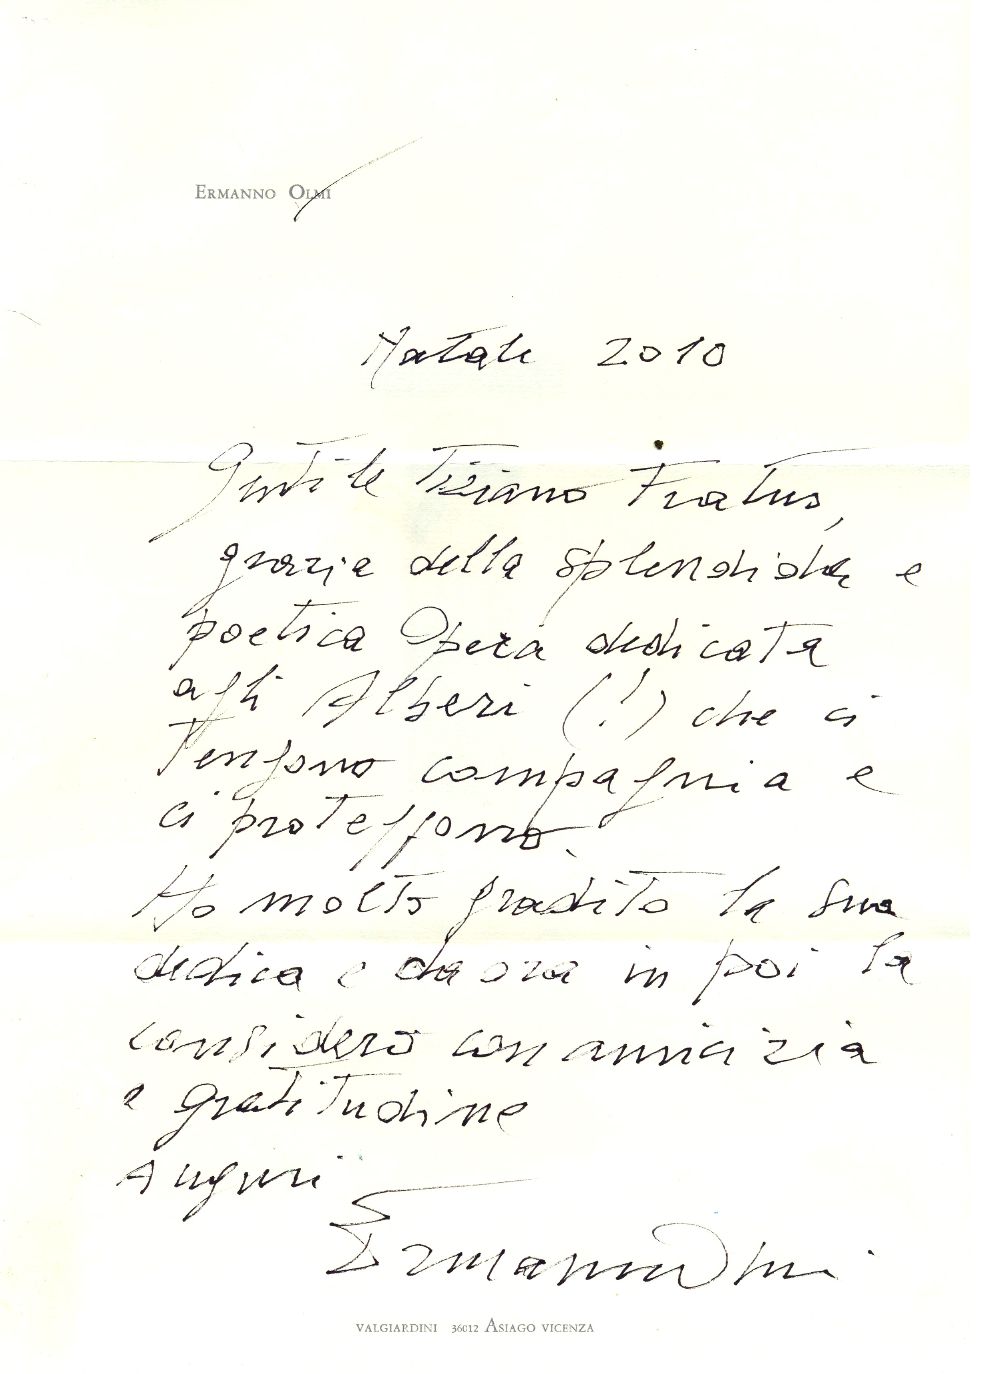 Ermanno Olmi
Natale 2010
Gentile Tiziano Fratus,
grazie della splendida e
poetica Opera dedicata
agli Alberi (!) che ci
tengono compagnia e
ci proteggono.
Ho molto gradito la sua
dedica e da ora in poi la
considero con amicizia
e gratitudine
Auguri
Ermanno Olmi
VALGIARDINI 36012 ASIAGO VICENZA